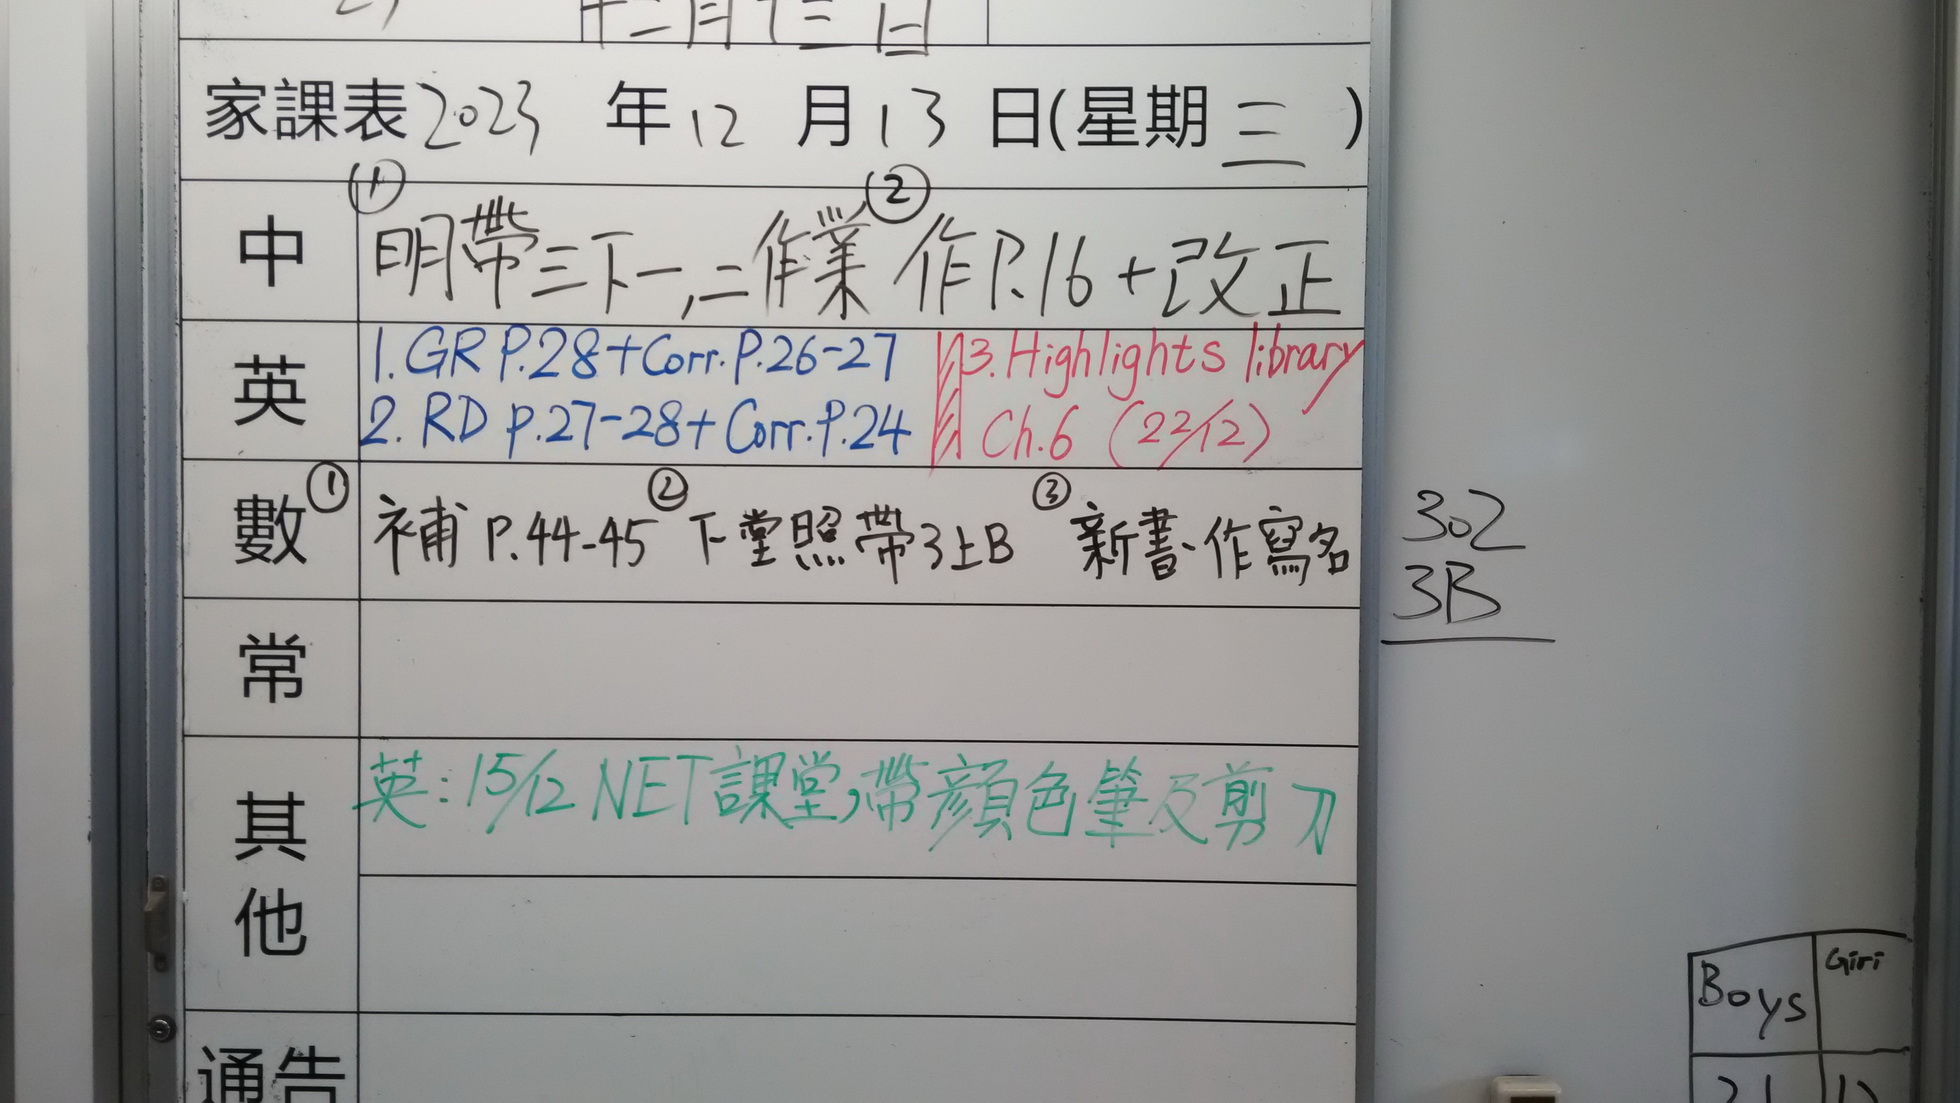 十二月十三日
家課表 2023 年 12 月 13 日(星期 三 )
中 ① 明帶三下一,二作業 ② 作P.16+改正
英 1. GR P.28+Corr. P.26-27
2. RD P.27-28+Corr. P.24
3. Highlights library
Ch.6 (22/12)
數 ① 補 P.44-45 ② 下堂照帶3上B ③ 新書、作寫名
常
其他 英: 15/12 NET課堂,帶顏色筆及剪刀
通告
302
3B
Boys Girl